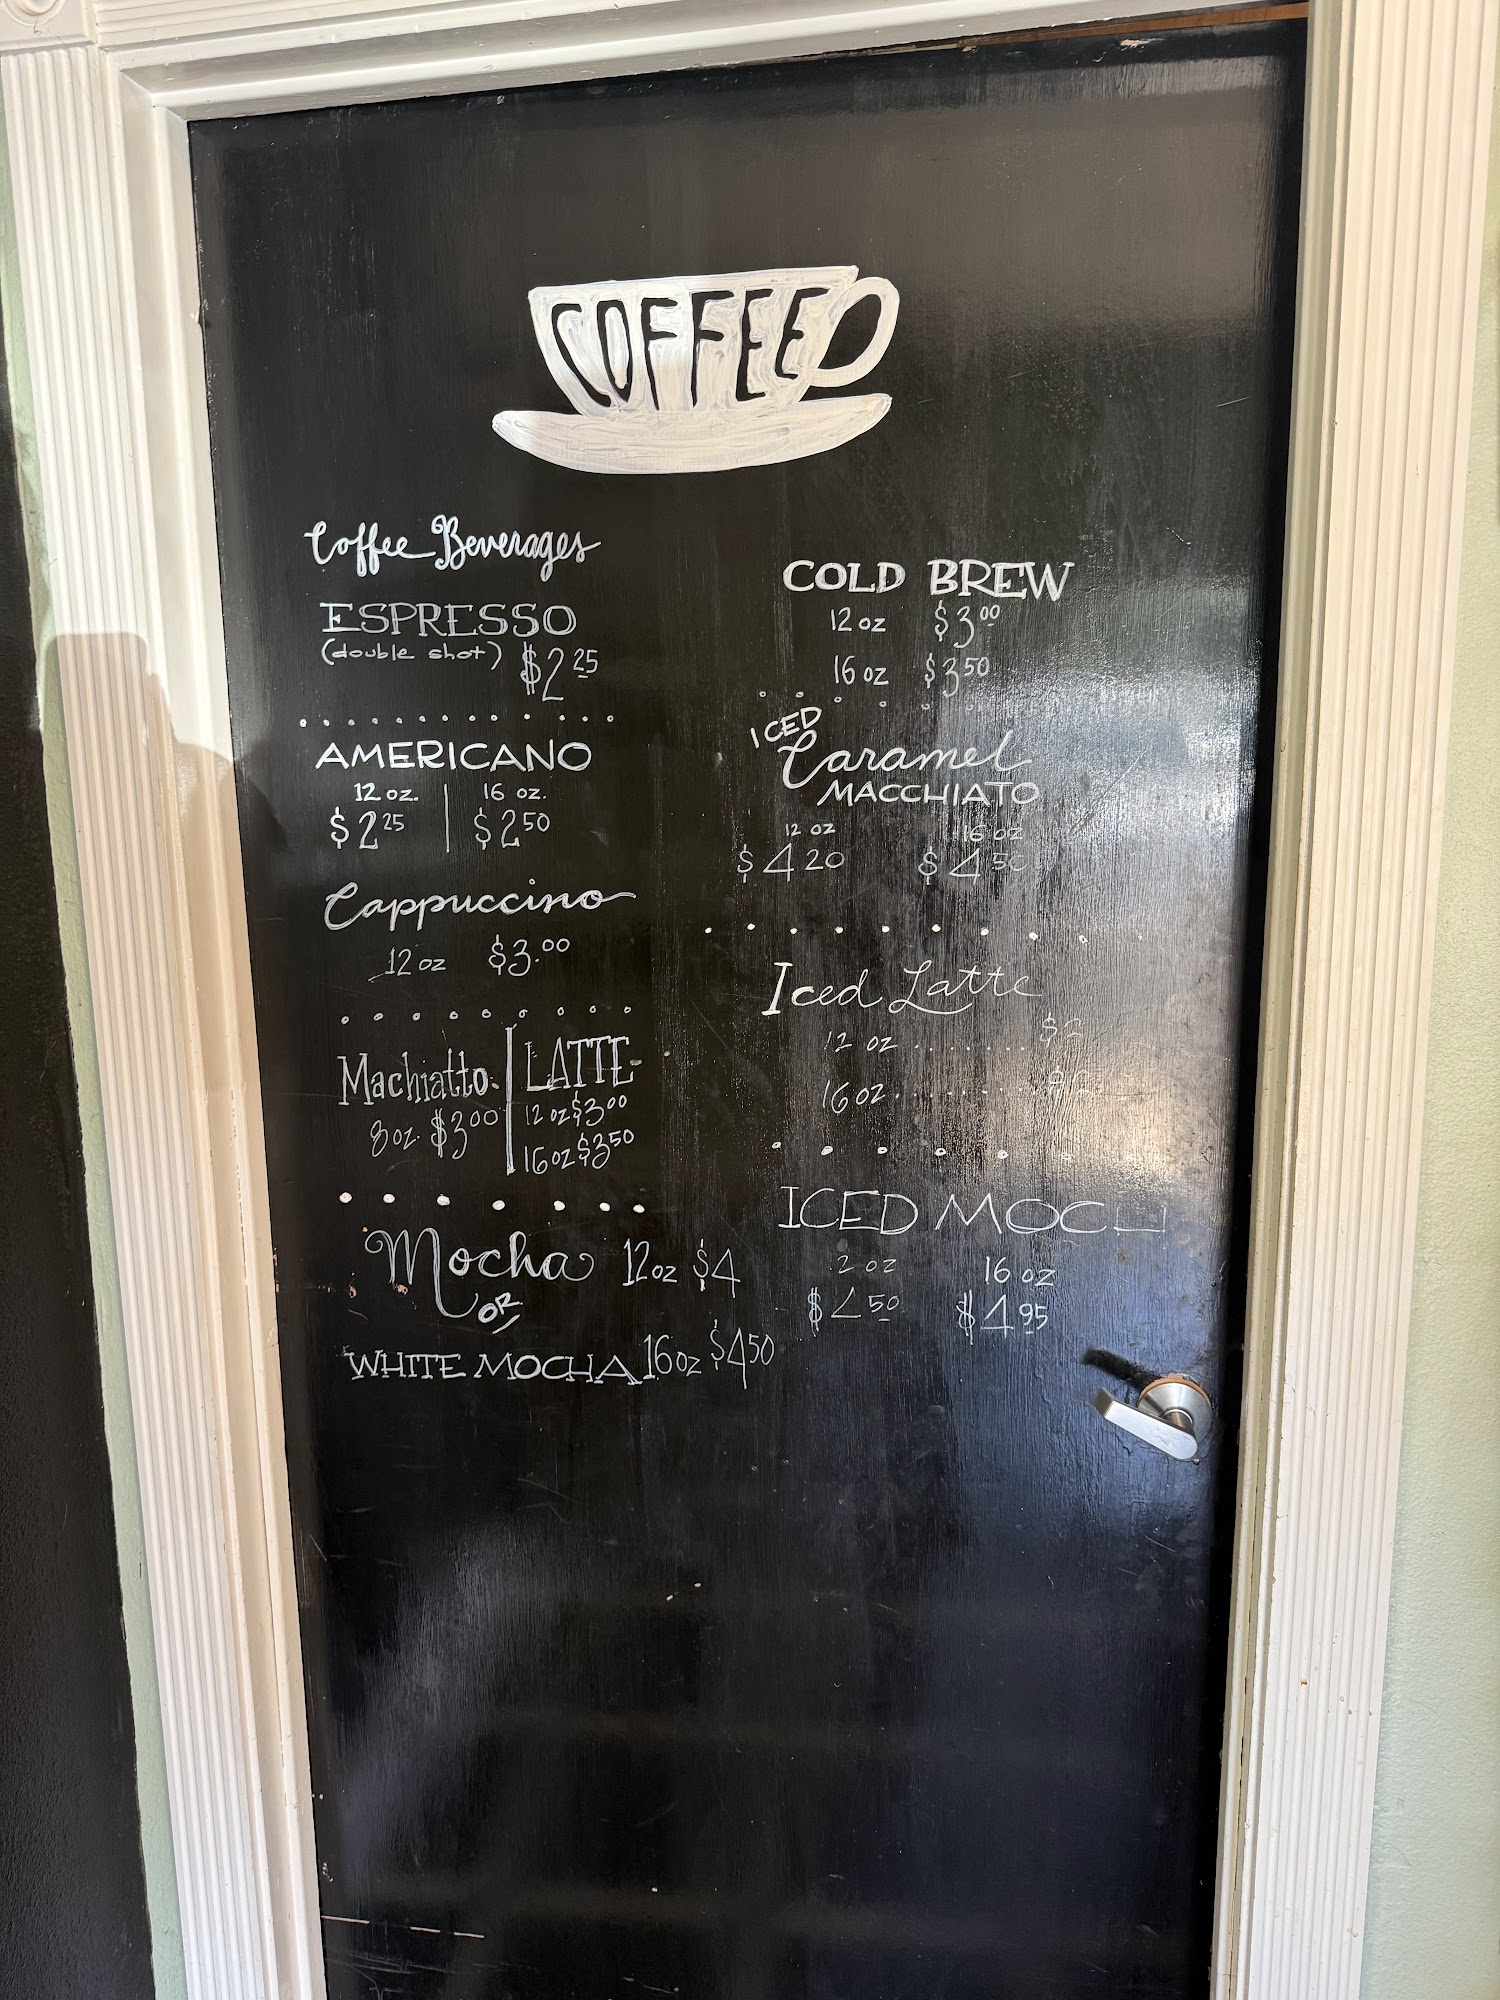 COFFEE
Coffee Beverages
ESPRESSO
(double shot) $2 25
AMERICANO
12 oz. | 16 oz.
$2 25 | $2 50
Cappuccino
12 oz $3.00
Machiatto
8 oz. $3 00
LATTE
12 oz $3 00
16 oz $3 50
Mocha 12 oz $4
OR
WHITE MOCHA 16 oz $4 50
COLD BREW
12 oz $3 00
16 oz $3 50
ICED
Caramel
MACCHIATO
12 oz 16 oz
$4 20 $4 50
Iced Latte
12 oz
16 oz
ICED
2 oz 16 oz
$4 50 $4 95